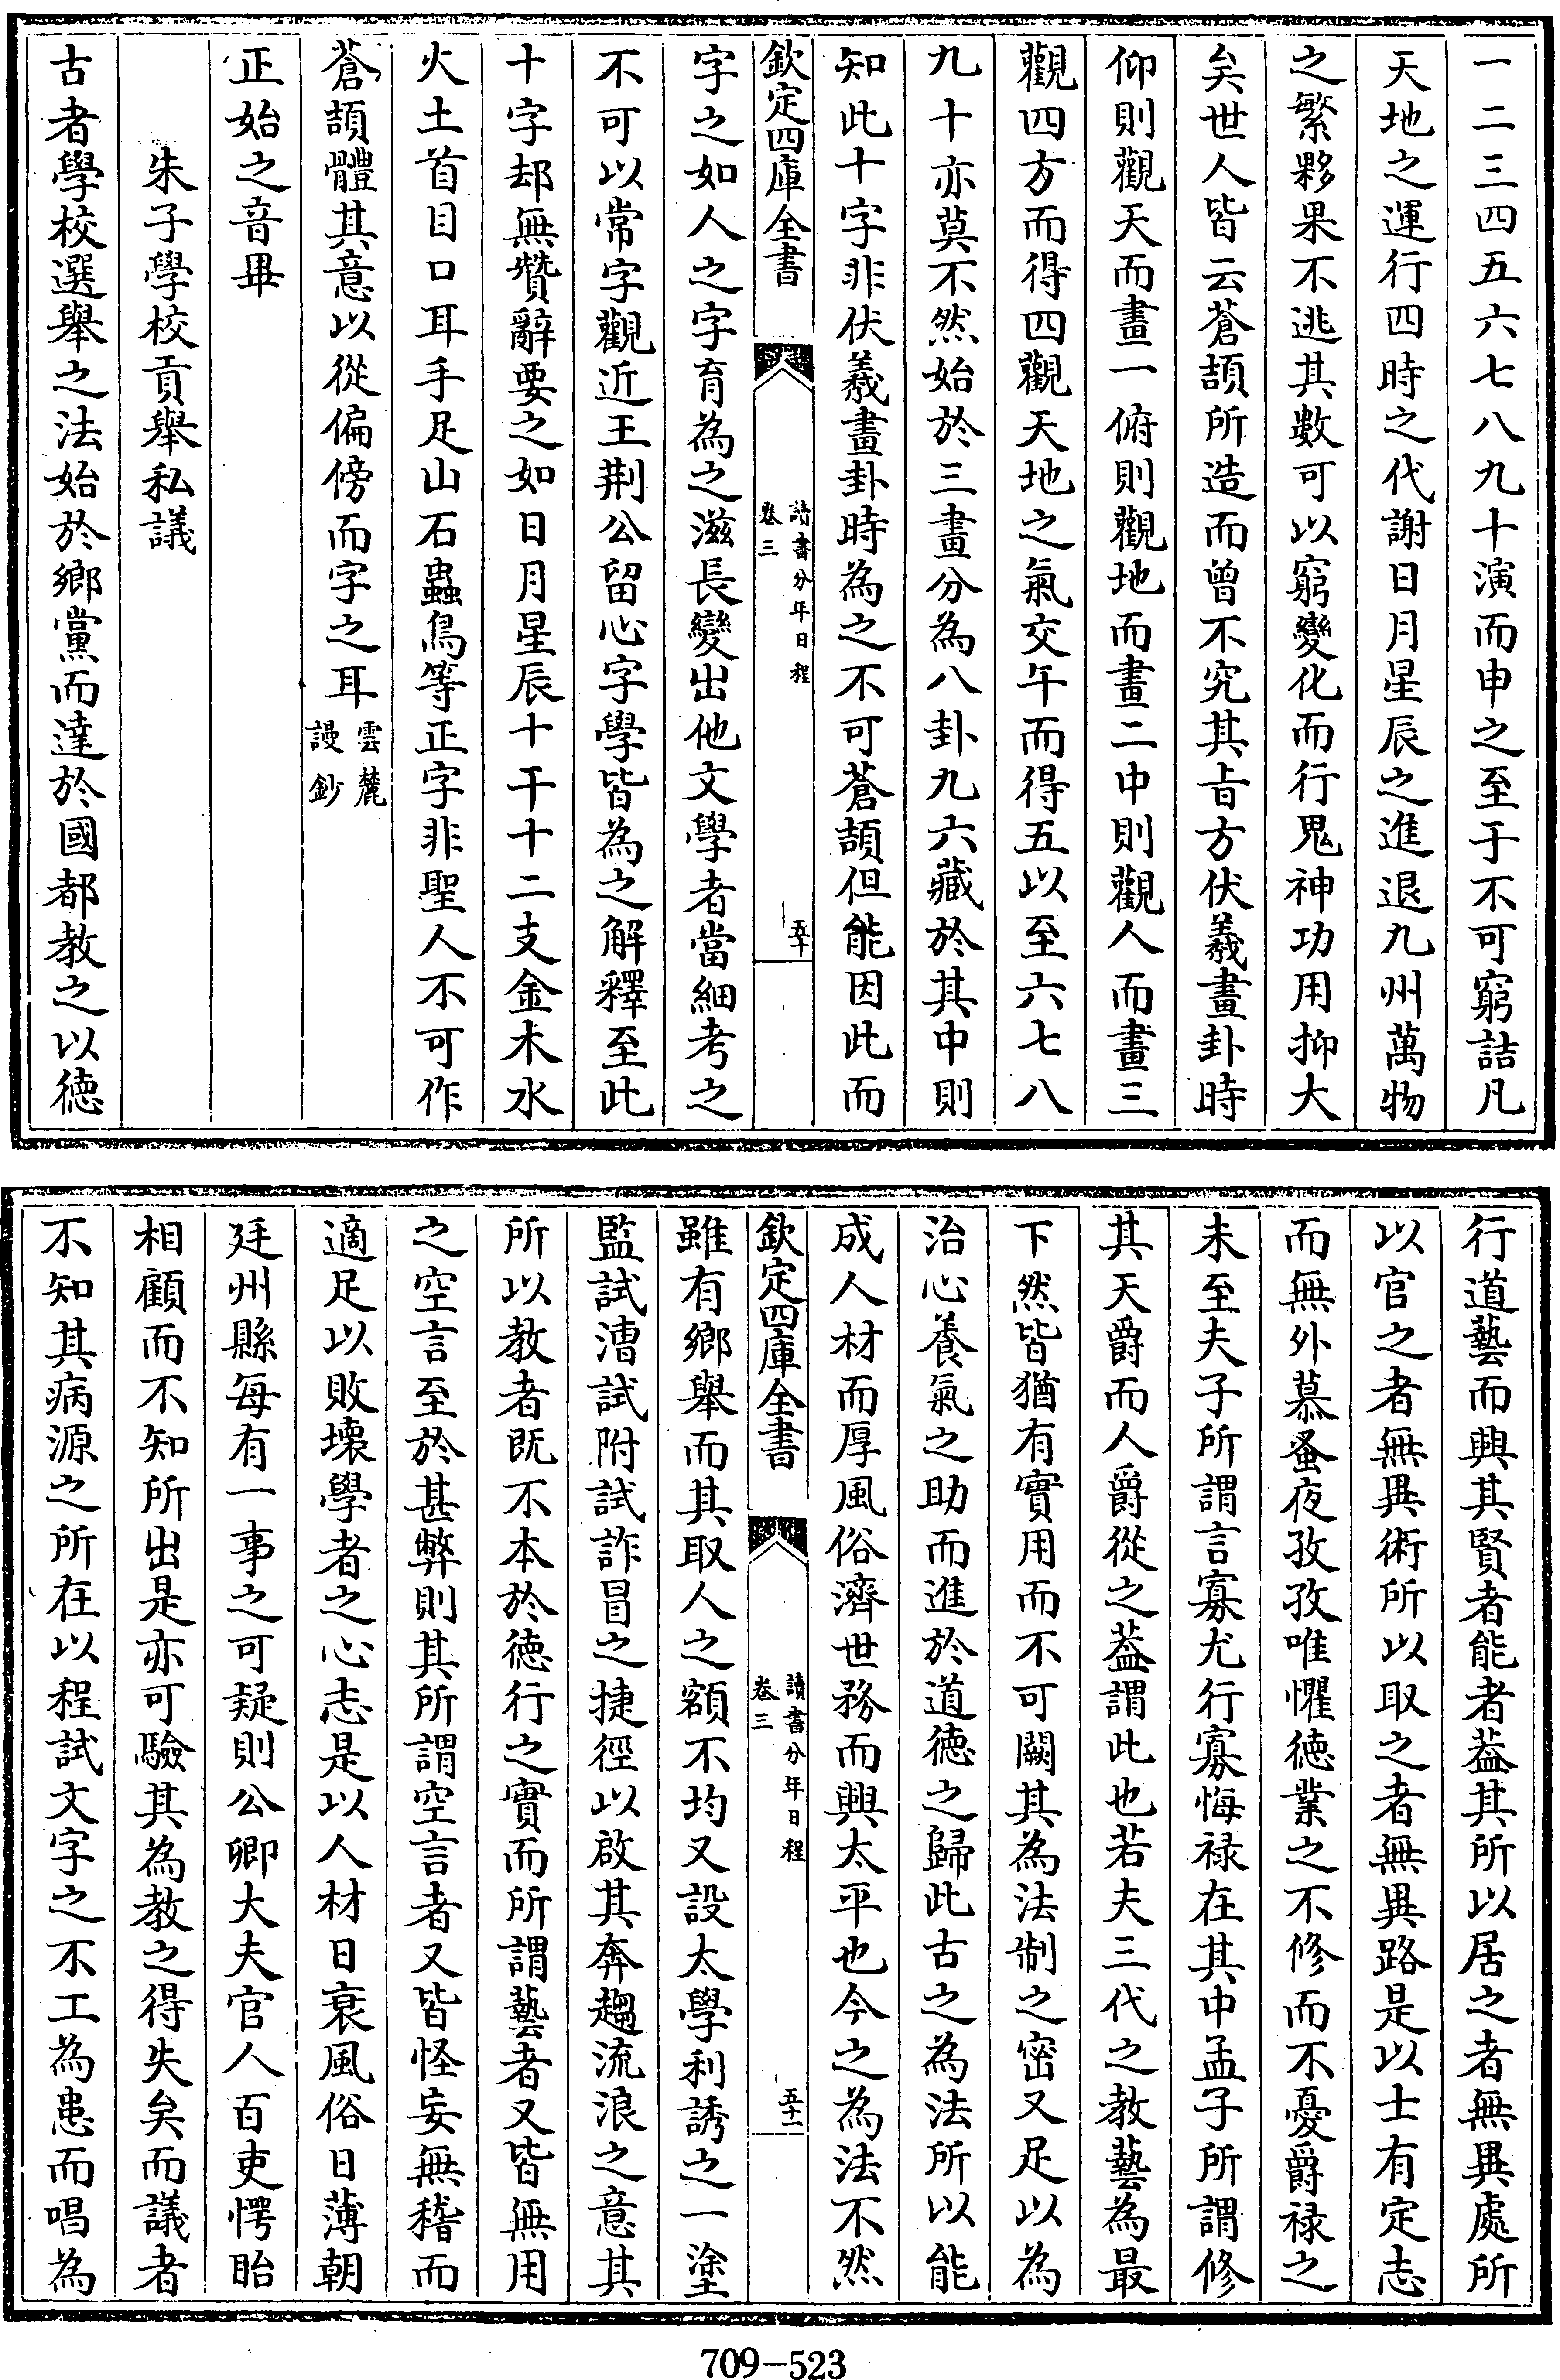 一二三四五六七八九十演而申之至于不可窮詰凡
天地之運行四時之代謝日月星辰之進退九州萬物
之繁夥果不逃其數可以窮變化而行鬼神功用抑大
矣世人皆云蒼頡所造而曾不究其㫖方伏羲畫卦時
仰則觀天而畫一俯則觀地而畫二中則觀人而畫三
觀四方而得四觀天地之氣交午而得五以至六七八
九十亦莫不然始於三畫分為八卦九六藏於其中則
知此十字非伏羲畫卦時為之不可蒼頡但能因此而
欽定四庫全書
讀書分年日程
卷三
五十
字之如人之字育為之滋長變出他文學者當細考之
不可以常字觀近王荆公留心字學皆為之解釋至此
十字却無贊辭要之如日月星辰十干十二支金木水
火土首目口耳手足山石蟲鳥等正字非聖人不可作
蒼頡體其意以從偏傍而字之耳雲麓
謾鈔
正始之音畢
朱子學校貢舉私議
古者學校選舉之法始於鄉黨而達於國都教之以德
行道藝而興其賢者能者葢其所以居之者無異處所
以官之者無異術所以取之者無異路是以士有定志
而無外慕蚤夜孜孜唯懼德業之不修而不憂爵禄之
未至夫子所謂言寡尤行寡悔禄在其中孟子所謂修
其天爵而人爵從之葢謂此也若夫三代之教藝為最
下然皆猶有實用而不可闕其為法制之密又足以為
治心養氣之助而進於道德之歸此古之為法所以能
成人材而厚風俗濟世務而興太平也今之為法不然
欽定四庫全書
讀書分年日程
卷三
五十一
雖有鄉舉而其取人之額不均又設太學利誘之一塗
監試漕試附試詐冒之捷徑以啟其奔趨流浪之意其
所以教者既不本於德行之實而所謂藝者又皆無用
之空言至於甚弊則其所謂空言者又皆怪妄無稽而
適足以敗壞學者之心志是以人材日衰風俗日薄朝
廷州縣每有一事之可疑則公卿大夫官人百吏愕眙
相顧而不知所出是亦可驗其為教之得失矣而議者
不知其病源之所在以程試文字之不工為患而唱為
709-523